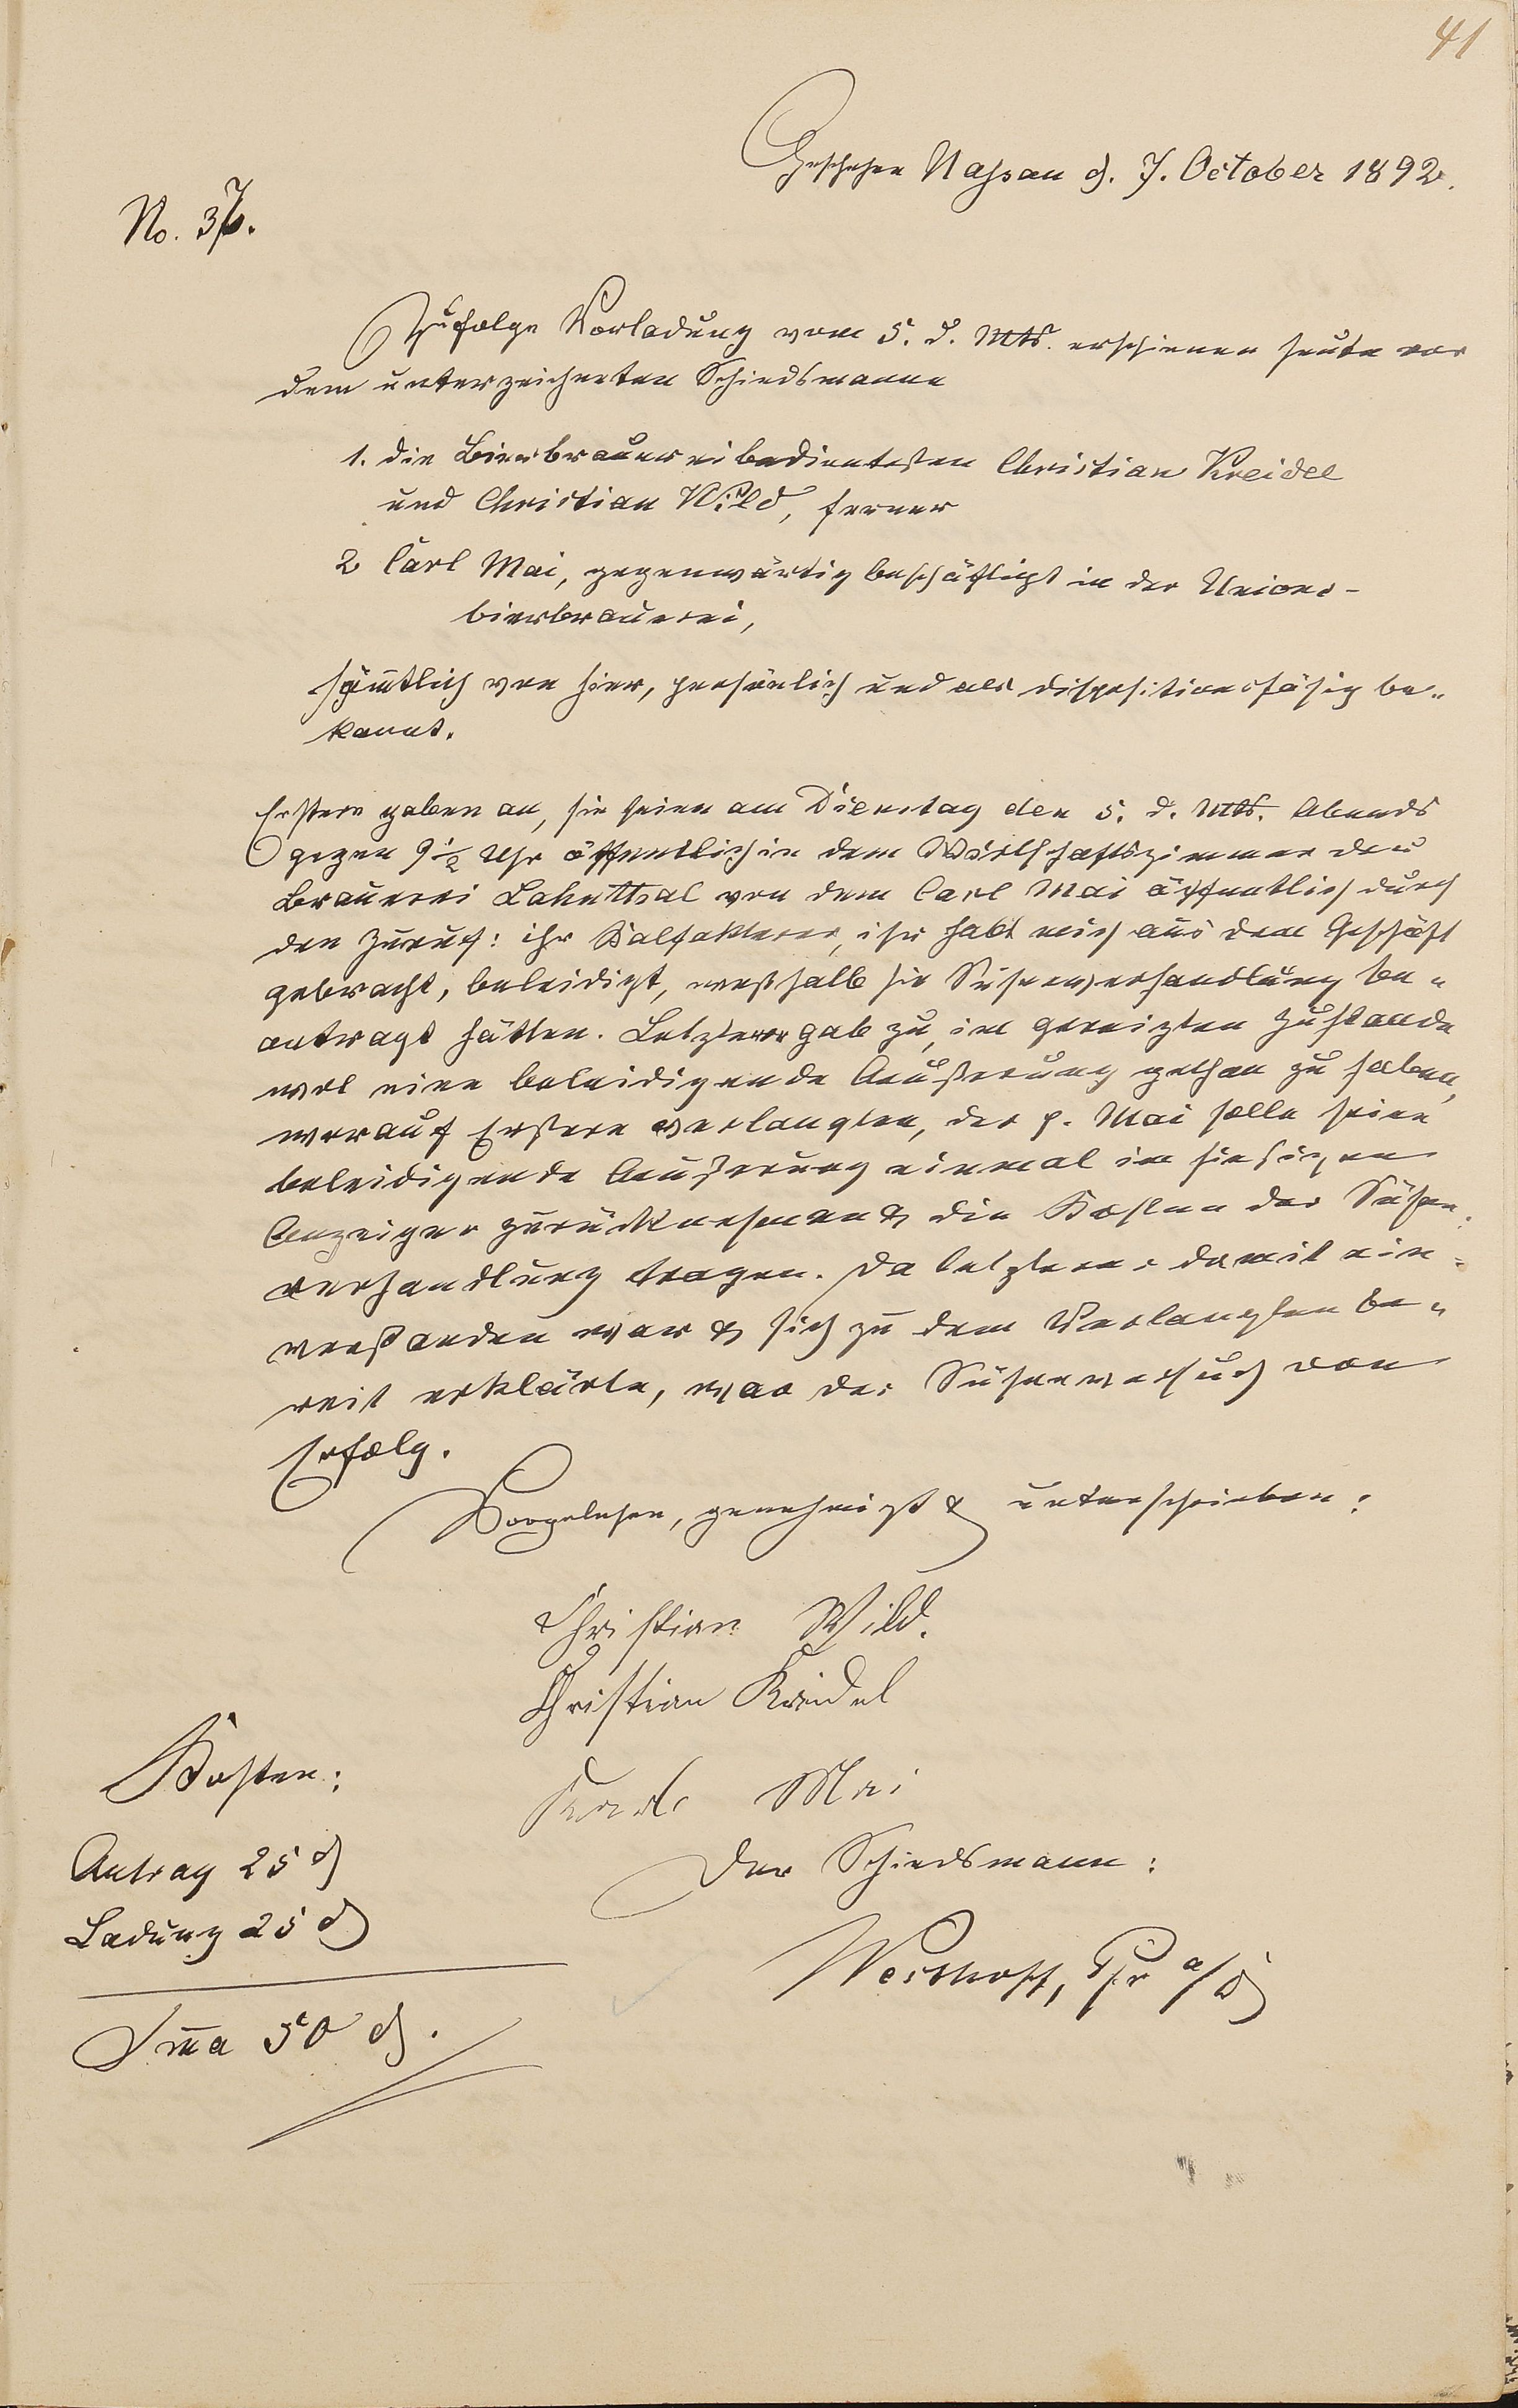 41
Geschehen Nassau d. 7. October 1892.
No. 37.
Zufolge Vorladung vom 5. d. Mts. erschienen heute vor
dem unterzeichneten Schiedsmanne
1. die Bierbrauereibediensteten Christian Kreidel
und Christian Wild, ferner
2 Carl Mai, gegenwärtig beschäftigt in der Unions-
bierbrauerei,
sämtlich von hier, persönlich und als dispositionsfähig be-
kannt.
Erstere gaben an, sie seien am Dienstag den 5. d. Mts. Abends
gegen 9 1/2 Uhr öffentlich in dem Wirthschaftszimmer der
Brauerei Lahnthal von dem Carl Mai öffentlich durch
den Zuruf: ihr Kalfakterer, ihr habt mich aus dem Geschäft
gebracht, beleidigt, weßhalb sie Sühneverhandlung be-
antragt hätten. Letzterer gab zu, im gereizten Zustande
wol eine beleidigende Aeußerung gethan zu haben,
worauf Erstere verlangten, der p. Mai solle seine
beleidigende Aeußerung einmal im hiesigen
Anzeiger zurücknehmen & die Kosten der Sühne-
verhandlung tragen. Da letzterer damit ein-
verstanden war & sich zu dem Verlangten be-
reit erklärte, war der Sühneversuch von
Erfolg.
Vorgelesen, genehmigt & unterschrieben:
Christian Wild.
Christian Kreidel
Karl Mai
Der Schiedsmann:
Kosten:
Antrag 25 ₰
Ladung 25 ₰
Sma 50 ₰.